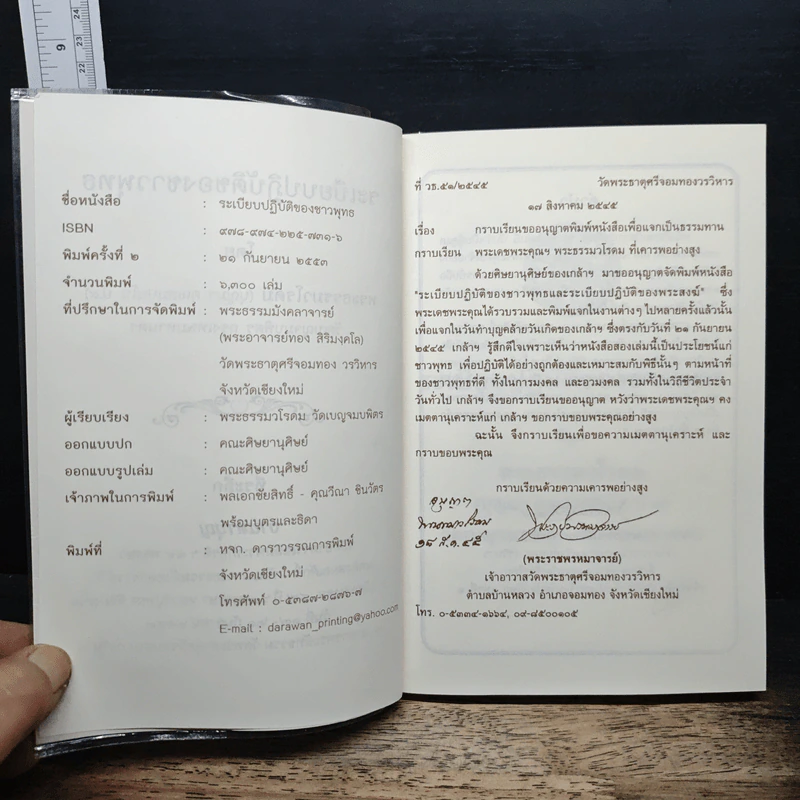 9
24
23
22
ชื่อหนังสือ : ระเบียบปฏิบัติของชาวพุทธ
ISBN : ๙๗๘-๙๗๔-๒๒๕-๗๓๑-๖
พิมพ์ครั้งที่ ๒ : ๒๑ กันยายน ๒๕๕๓
จำนวนพิมพ์ : ๖,๓๐๐ เล่ม
ที่ปรึกษาในการจัดพิมพ์ : พระธรรมมังคลาจารย์
(พระอาจารย์ทอง สิริมงฺคโล)
วัดพระธาตุศรีจอมทอง วรวิหาร
จังหวัดเชียงใหม่
ผู้เรียบเรียง : พระธรรมวโรดม วัดเบญจมบพิตร
ออกแบบปก : คณะศิษยานุศิษย์
ออกแบบรูปเล่ม : คณะศิษยานุศิษย์
เจ้าภาพในการพิมพ์ : พลเอกชัยสิทธิ์ - คุณวีณา ชินวัตร
พร้อมบุตรและธิดา
พิมพ์ที่ : หจก. ดาราวรรณการพิมพ์
จังหวัดเชียงใหม่
โทรศัพท์ ๐-๕๓๘๗-๒๘๗๖-๗
E-mail : darawan_printing@yahoo.com
ที่ วธ.๕๑/๒๕๔๕ วัดพระธาตุศรีจอมทองวรวิหาร
๑๗ สิงหาคม ๒๕๔๕
เรื่อง กราบเรียนขออนุญาตพิมพ์หนังสือเพื่อแจกเป็นธรรมทาน
กราบเรียน พระเดชพระคุณฯ พระธรรมวโรดม ที่เคารพอย่างสูง
ด้วยศิษยานุศิษย์ของเกล้าฯ มาขออนุญาตจัดพิมพ์หนังสือ
"ระเบียบปฏิบัติของชาวพุทธและระเบียบปฏิบัติของพระสงฆ์" ซึ่ง
พระเดชพระคุณได้รวบรวมและพิมพ์แจกในงานต่างๆ ไปหลายครั้งแล้วนั้น
เพื่อแจกในวันทำบุญคล้ายวันเกิดของเกล้าฯ ซึ่งตรงกับวันที่ ๒๑ กันยายน
๒๕๔๕ เกล้าฯ รู้สึกดีใจเพราะเห็นว่าหนังสือสองเล่มนี้เป็นประโยชน์แก่
ชาวพุทธ เพื่อปฏิบัติได้อย่างถูกต้องและเหมาะสมกับพิธีนั้นๆ ตามหน้าที่
ของชาวพุทธที่ดี ทั้งในการมงคล และอวมงคล รวมทั้งในวิถีชีวิตประจำ
วันทั่วไป เกล้าฯ จึงขอกราบเรียนขออนุญาต หวังว่าพระเดชพระคุณฯ คง
เมตตานุเคราะห์แก่ เกล้าฯ ขอกราบขอบพระคุณอย่างสูง
ฉะนั้น จึงกราบเรียนเพื่อขอความเมตตานุเคราะห์ และ
กราบขอบพระคุณ
กราบเรียนด้วยความเคารพอย่างสูง
๑๘ ส.ค. ๔๕
(พระราชพรหมาจารย์)
เจ้าอาวาสวัดพระธาตุศรีจอมทองวรวิหาร
ตำบลบ้านหลวง อำเภอจอมทอง จังหวัดเชียงใหม่
โทร. ๐-๕๓๓๔-๑๖๖๔, ๐๙-๘๕๐๐๑๐๕